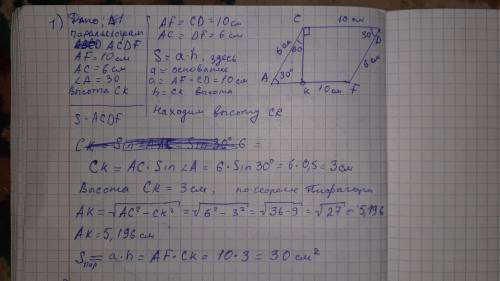 1) Дано: №1
параллелограм
ACDF
AF = 10см
AC = 6см
∠A = 30
Высота CK
S - ACDF
AF = CD = 10см
AC = DF = 6см
S = a·h, здесь
a = основание
a = AF = CD = 10см
h = CK высота
Находим высоту CK
C 10 см D
6 см 60 30° 6 см
A 30° K 10см F
CK = AC · Sin ∠A = 6 · Sin 30° = 6·0,5 = 3см
Высота CK = 3см, по теореме Пифагора
AK = √AC² - CK² = √6² - 3² = √36 - 9 = √27 = 5,196
AK = 5,196 см
Sпар = a·h = AF · CK = 10·3 = 30 см²